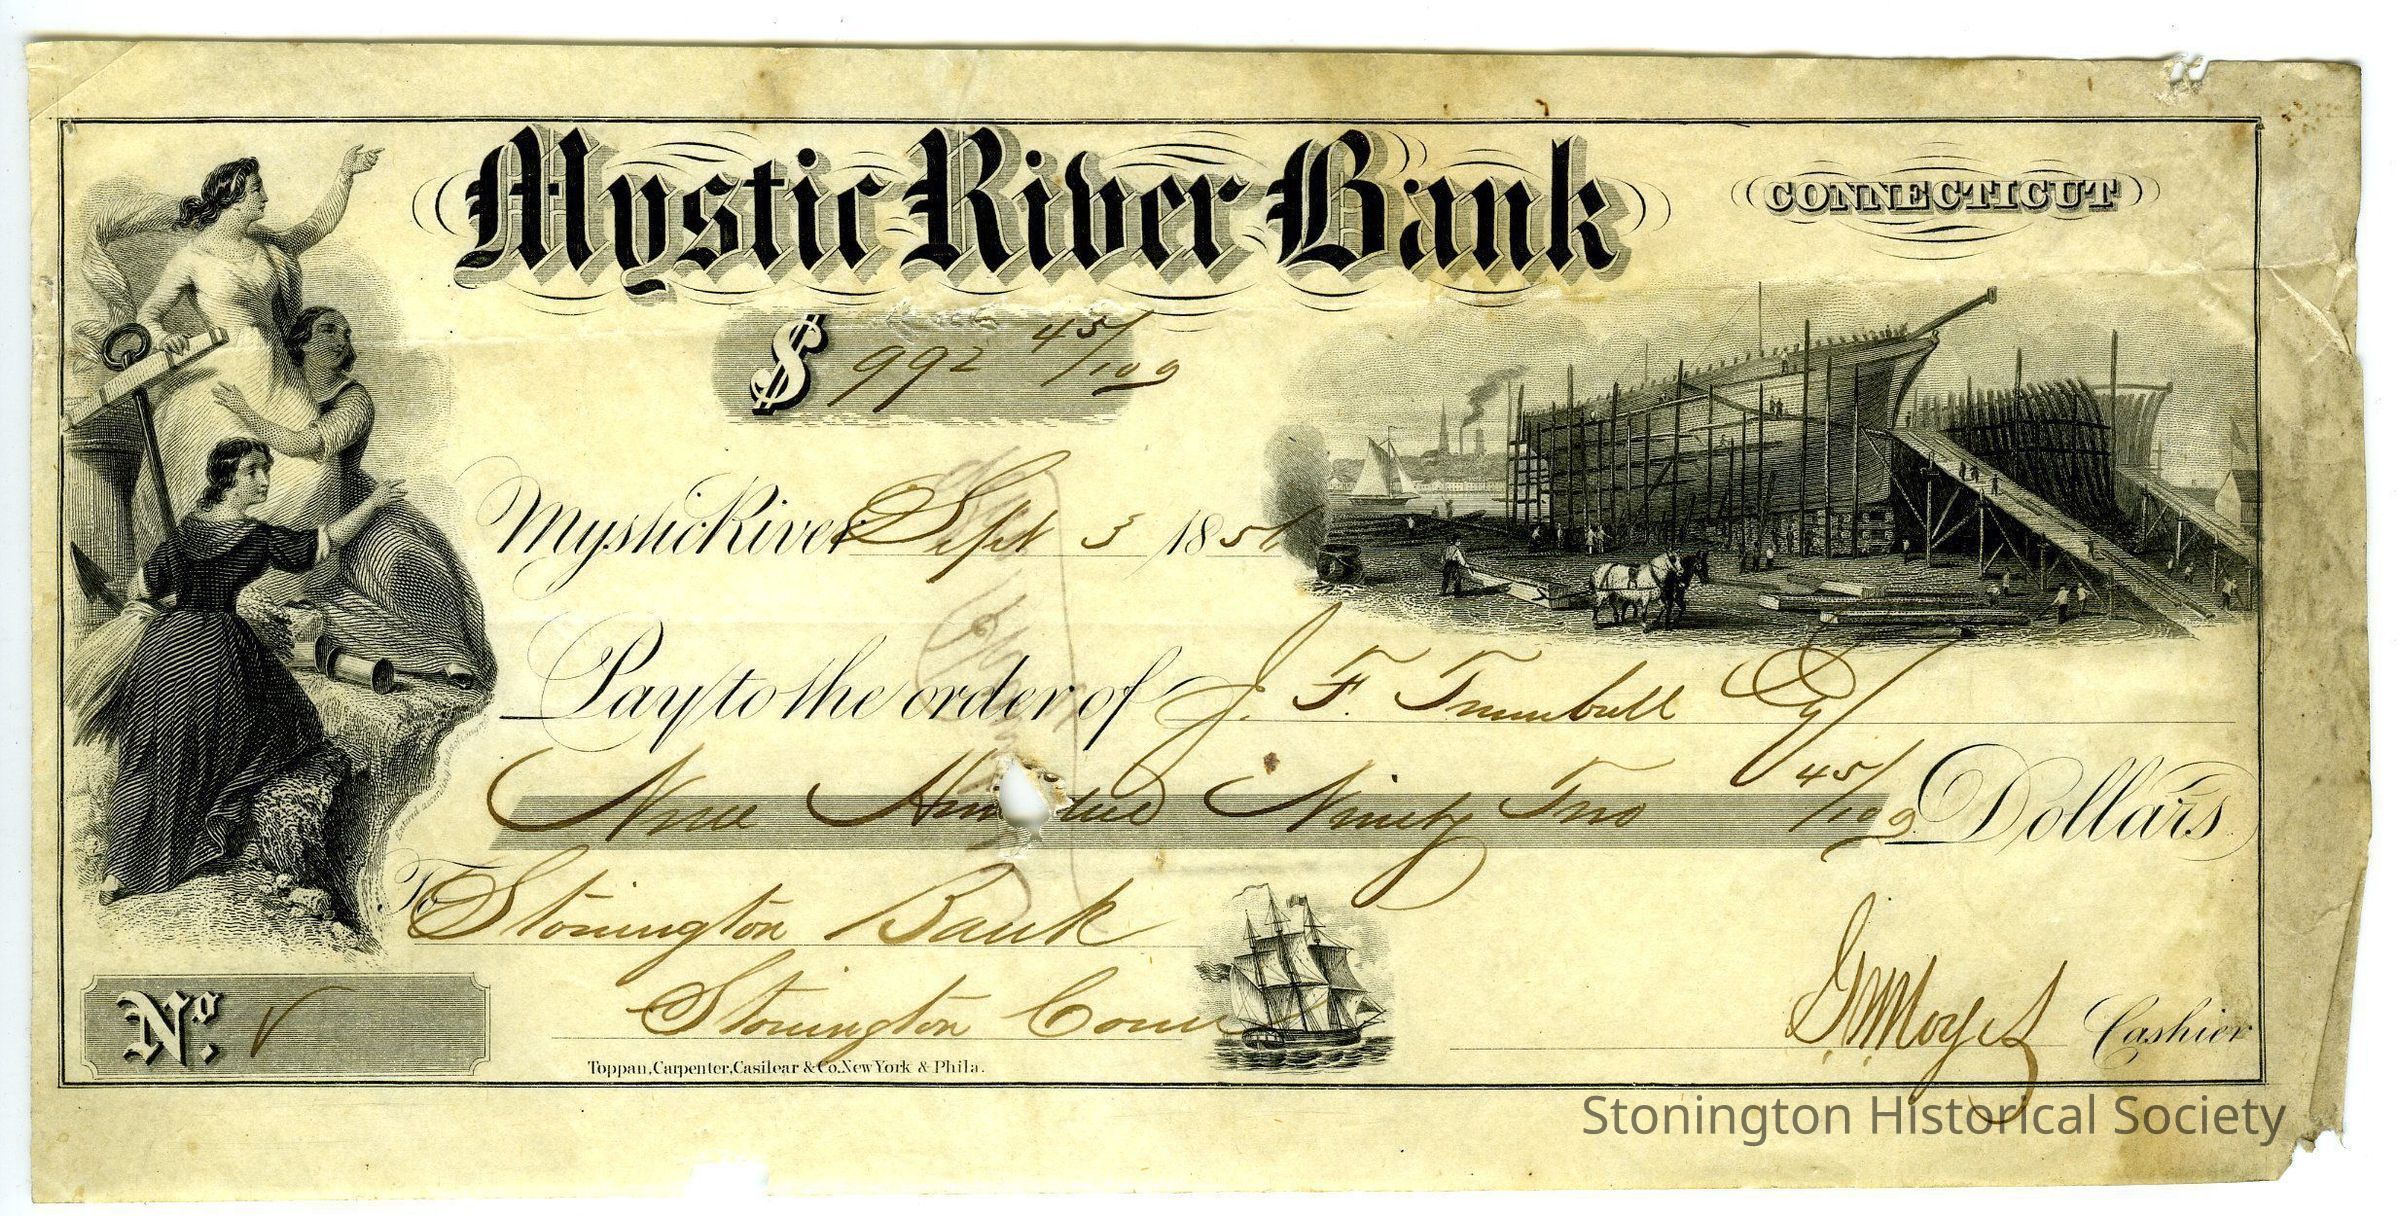 Mystic River Bank
CONNECTICUT
$ 992 45/100
Mystic River Sept 3 1856
Pay to the order of J. F. Trumbull
Nine Hundred Ninety Two 45/100 Dollars
To Stonington Bank
Stonington Conn
No.
Cashier
Toppan, Carpenter, Casilear & Co. New York & Phila.
Stonington Historical Society